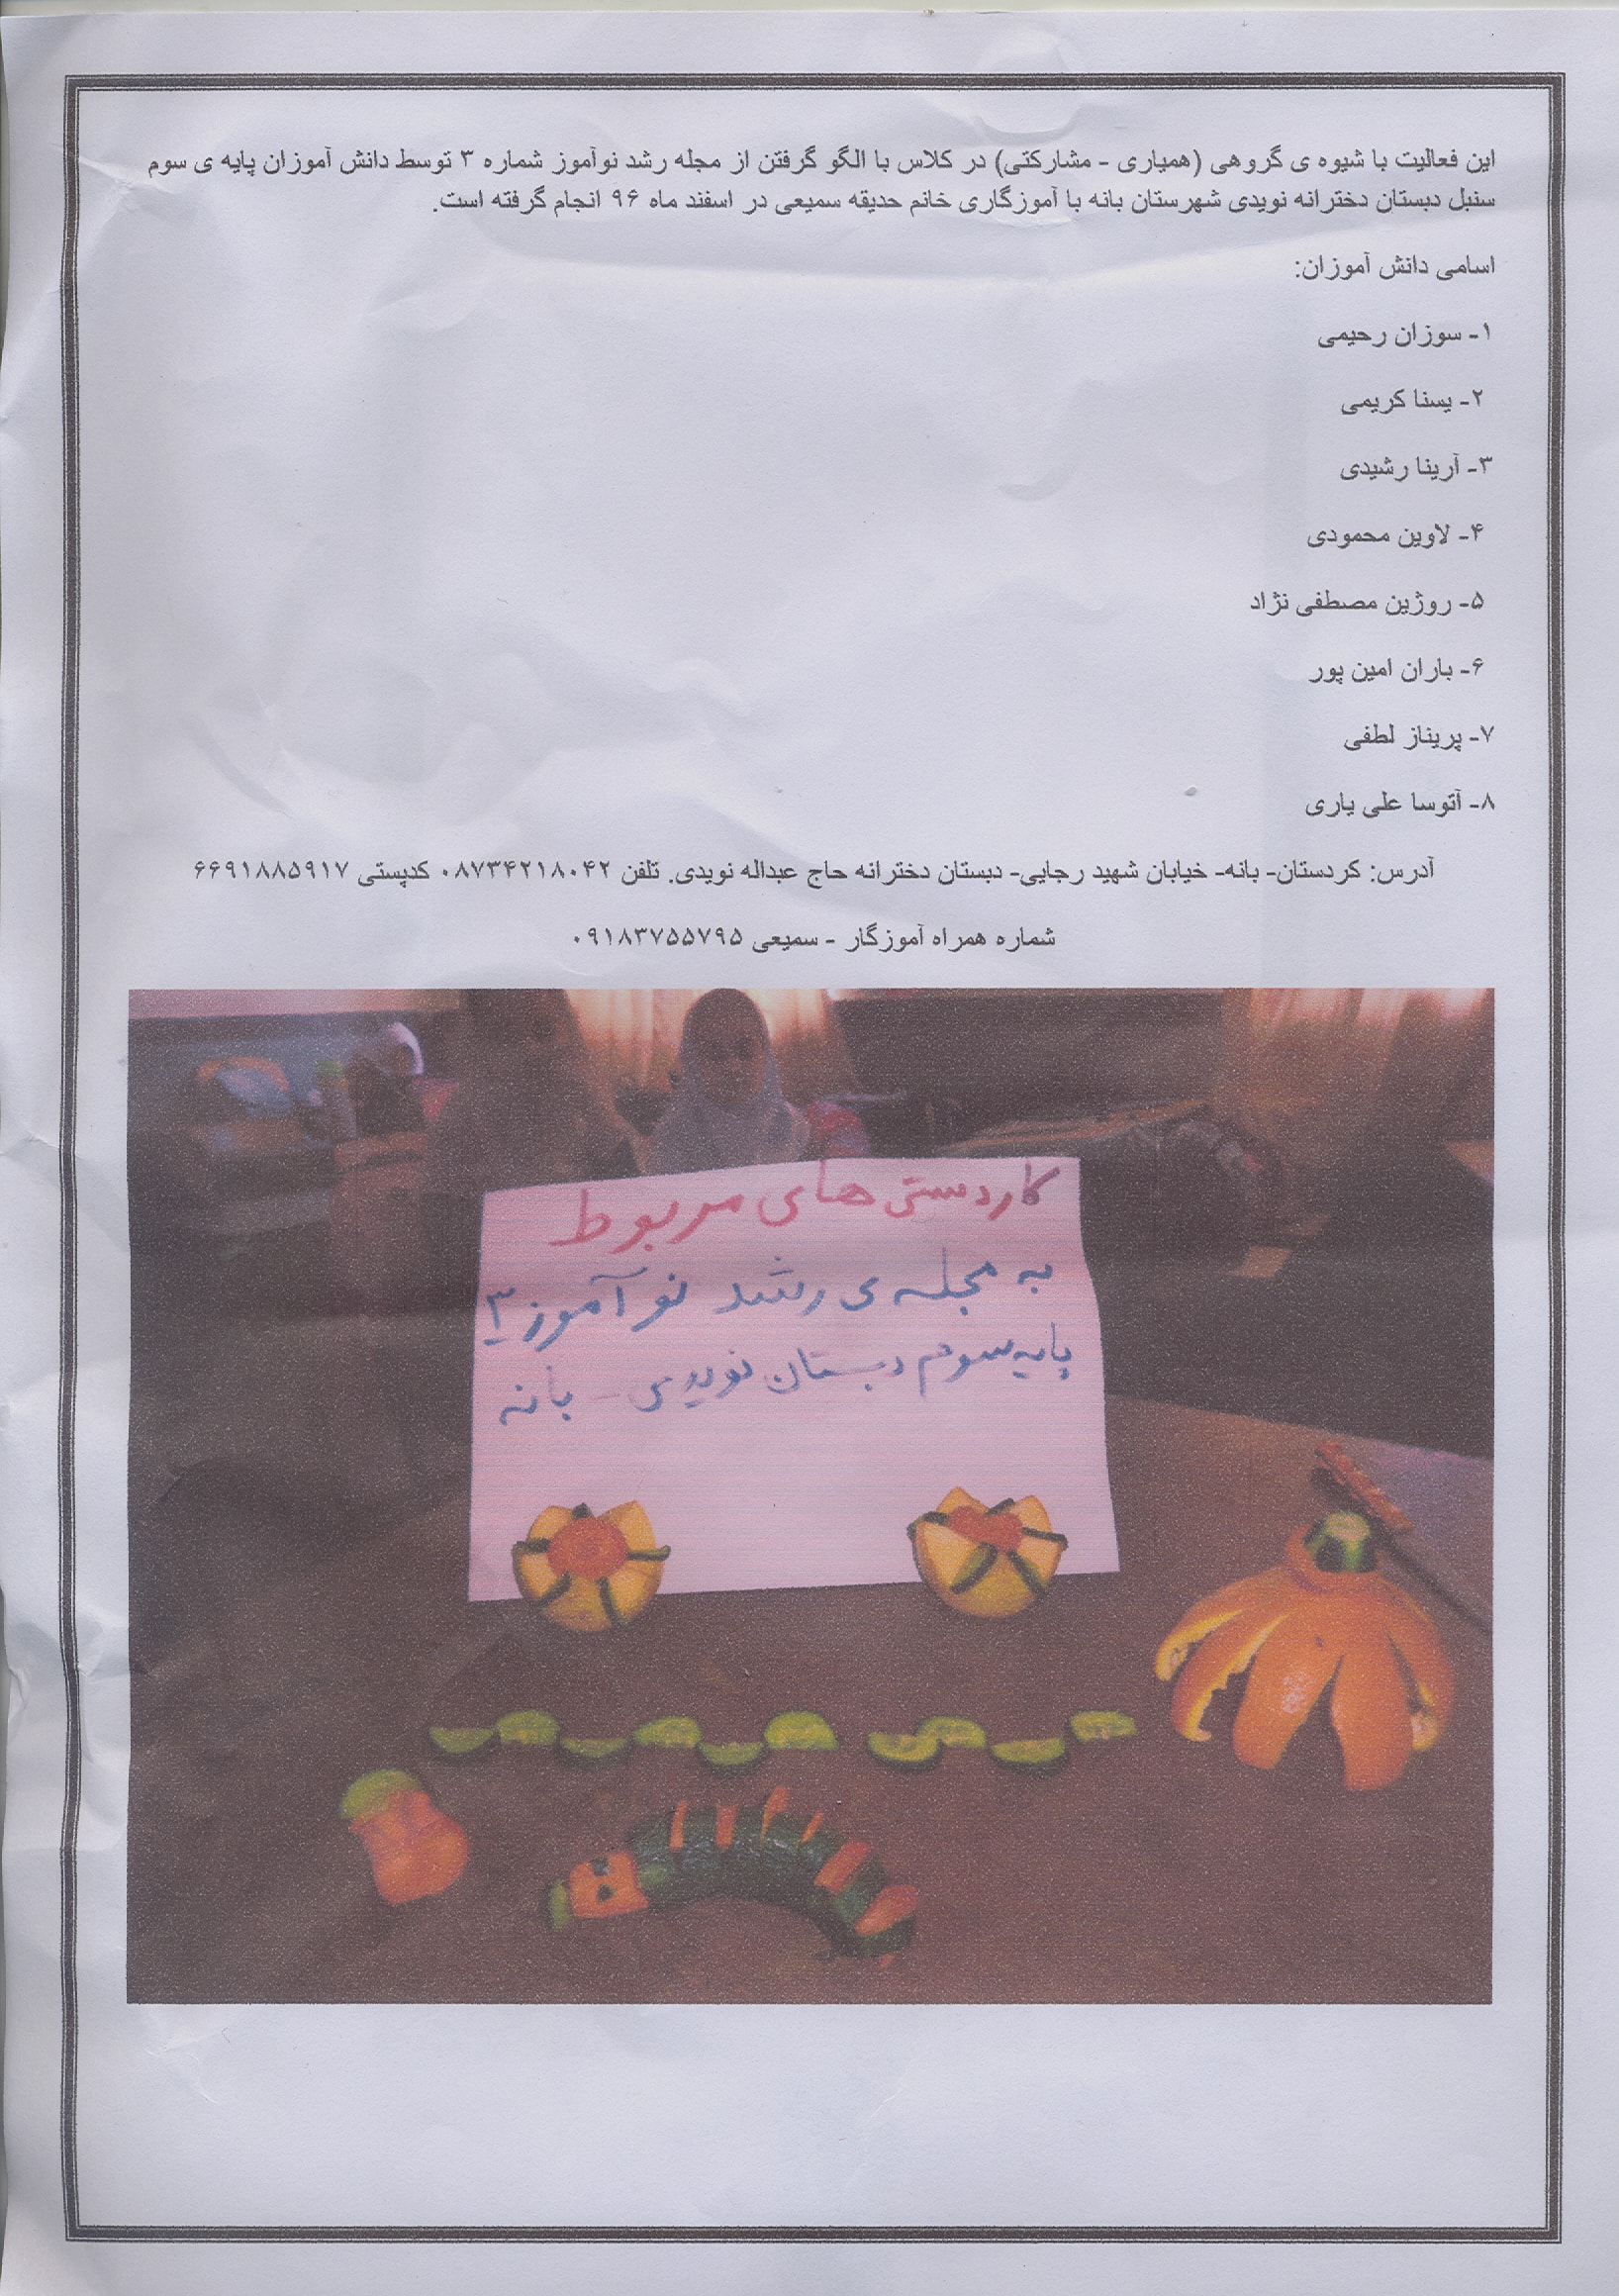 این فعالیت با شیوه ی گروهی (همیاری - مشارکتی) در کلاس با الگو گرفتن از مجله رشد نوآموز شماره ۳ توسط دانش آموزان پایه ی سوم
سنبل دبستان دخترانه نویدی شهرستان بانه با آموزگاری خانم حدیقه سمیعی در اسفند ماه ۹۶ انجام گرفته است.
اسامی دانش آموزان:
۱- سوزان رحیمی
۲- یسنا کریمی
۳- آرینا رشیدی
۴- لاوین محمودی
۵- روژین مصطفی نژاد
۶- باران امین پور
۷- پریناز لطفی
۸- آتوسا علی یاری
آدرس: کردستان- بانه- خیابان شهید رجایی- دبستان دخترانه حاج عبداله نویدی. تلفن ۰۸۷۳۴۲۱۸۰۴۲ کدپستی ۶۶۹۱۸۸۵۹۱۷
شماره همراه آموزگار - سمیعی ۰۹۱۸۳۷۵۵۷۹۵
کاردستی های مربوط
به مجله ی رشد نو آموز ۳
پایه سوم دبستان نویدی - بانه